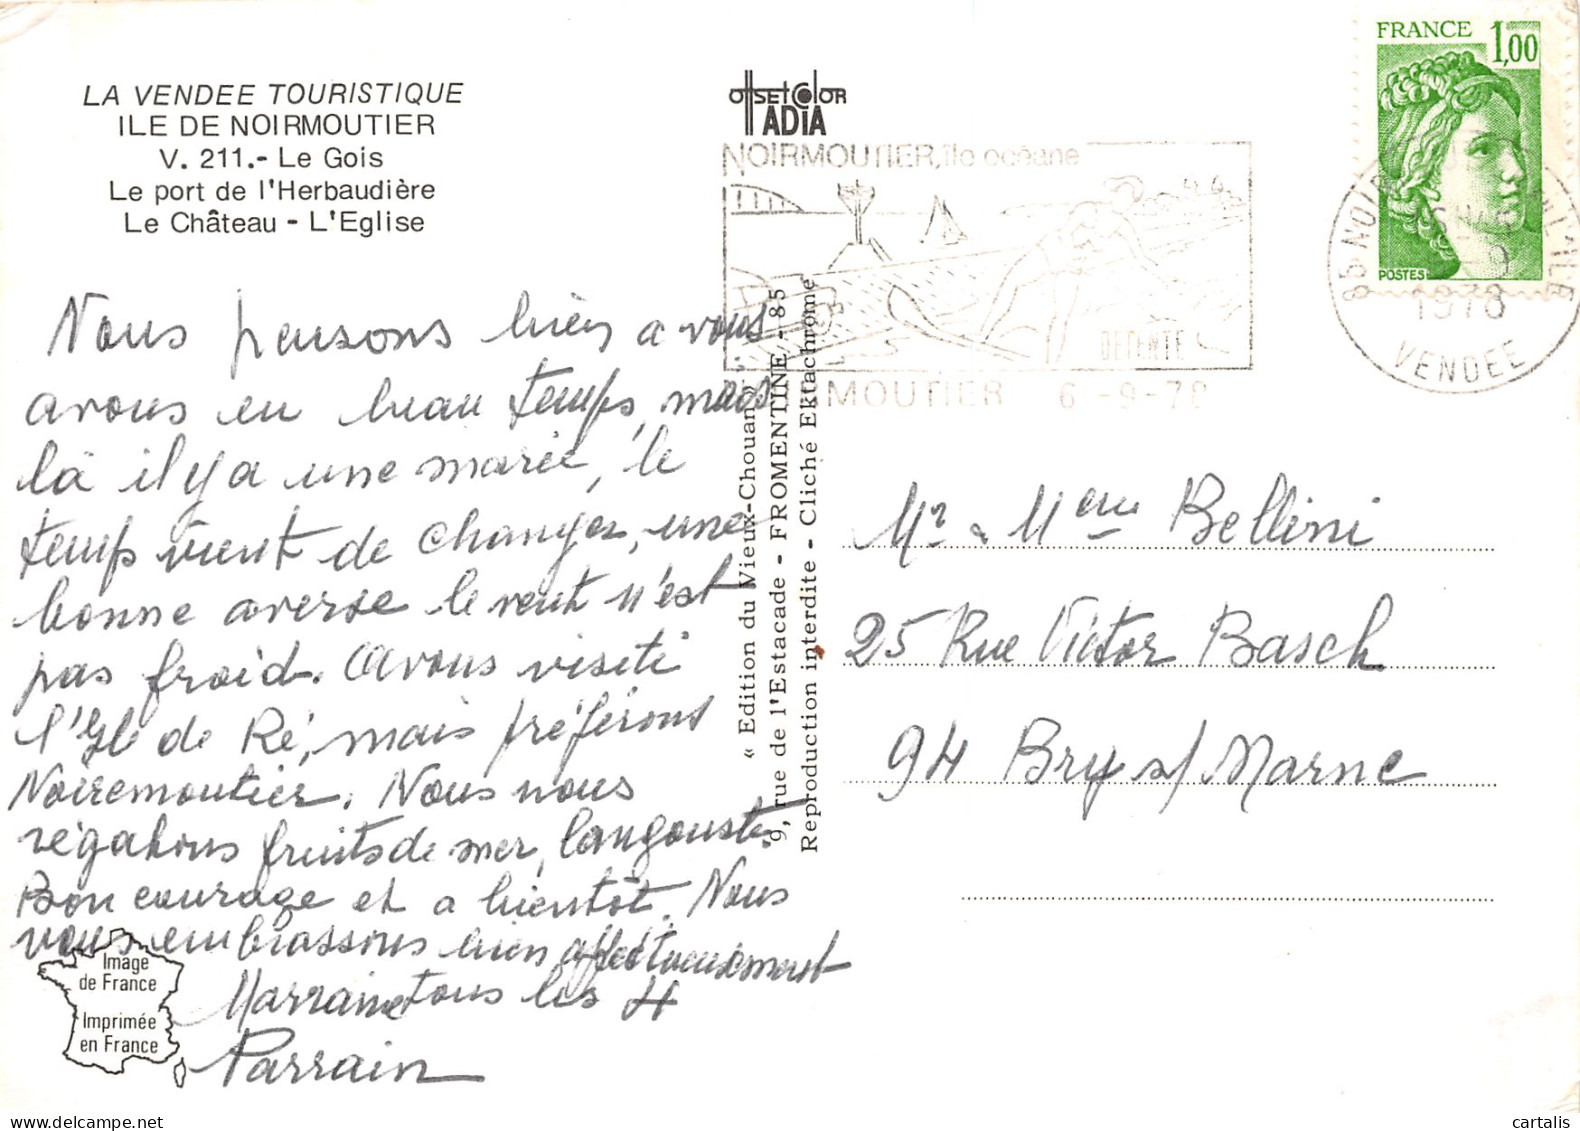 LA VENDEE TOURISTIQUE
ILE DE NOIRMOUTIER
V. 211.- Le Gois
Le port de l'Herbaudière
Le Château - L'Eglise
offsEt ColOR
ADiA
NOIRMOUTIER, île océane
DETENTE
MOUTIER 6 -9-78
FRANCE 1,00
POSTES
85 NOIR
1978
VENDEE
« Edition du Vieux-Chouan »
9, rue de l'Estacade - FROMENTINE - 85
Reproduction interdite - Cliché Ektachrome
Nous pensons bien a vous
avons eu beau temps, mais
là il y a une marée, le
temps vient de changer, une
bonne averse le vent n'est
pas froid. Avons visité
l'Ile de Ré, mais préférons
Noiremoutier. Nous nous
régalons fruits de mer, langouste.
Bon courage et a bientôt. Nous
vous embrassons bien affectueusement
tous les 4
Marraine
Parrain
Mr & Mme Bellini
25 Rue Victor Basch
94 Bry s/ Marne
Image
de France
Imprimée
en France
cartalis